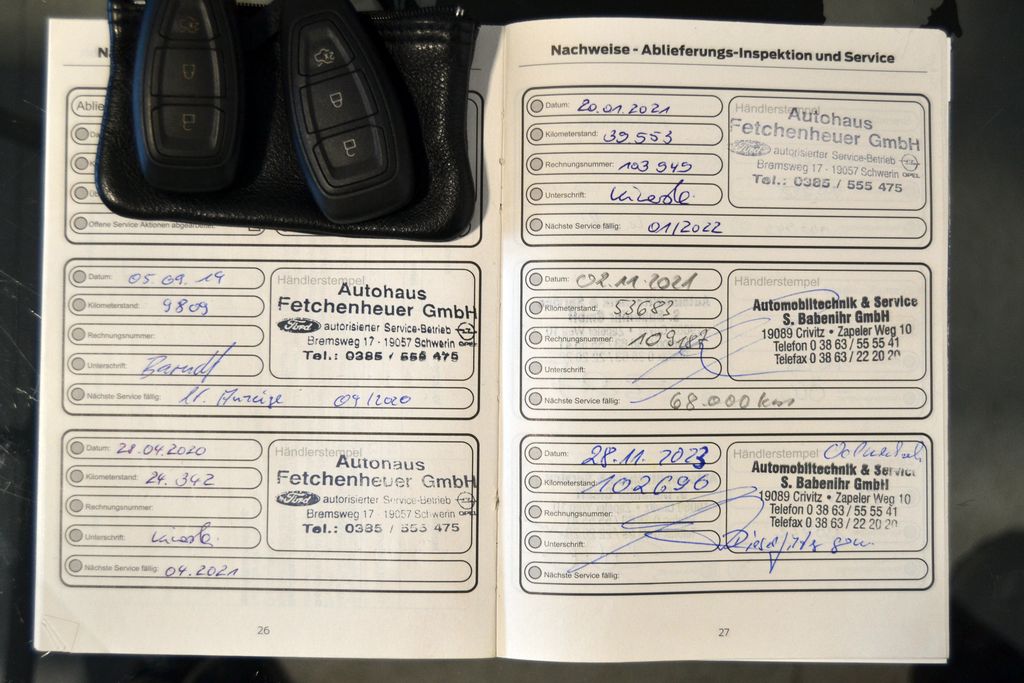 Nachweise - Ablieferungs-Inspektion und Service
Ablie
Offene Service Aktionen abgearbeitet:
Datum: 05.09.19
Kilometerstand: 9809
Rechnungsnummer:
Unterschrift:
Nächste Service fällig: lt. Anzeige 09/2020
Händlerstempel
Autohaus
Fetchenheuer GmbH
Ford autorisierter Service-Betrieb
Bremsweg 17 - 19057 Schwerin OPEL
Tel.: 0385 / 555 475
Datum: 28.04.2020
Kilometerstand: 24.342
Rechnungsnummer:
Unterschrift:
Nächste Service fällig: 04.2021
Händlerstempel
Autohaus
Fetchenheuer GmbH
Ford autorisierter Service-Betrieb
Bremsweg 17 - 19057 Schwerin OPEL
Tel.: 0385 / 555 475
26
Datum: 20.01.2021
Kilometerstand: 39.553
Rechnungsnummer: 103949
Unterschrift:
Nächste Service fällig: 01/2022
Händlerstempel
Autohaus
Fetchenheuer GmbH
Ford autorisierter Service-Betrieb
Bremsweg 17 - 19057 Schwerin OPEL
Tel.: 0385 / 555 475
Datum: 02.11.2021
Kilometerstand: 53683
Rechnungsnummer:
Unterschrift:
Nächste Service fällig: 68.000 km
Händlerstempel
Automobiltechnik & Service
S. Babenihr GmbH
19089 Crivitz • Zapeler Weg 10
Telefon 0 38 63 / 55 55 41
Telefax 0 38 63 / 22 20 20
Datum: 28.11.2023
Kilometerstand: 102696
Rechnungsnummer:
Unterschrift:
Nächste Service fällig:
Händlerstempel
Automobiltechnik & Service
S. Babenihr GmbH
19089 Crivitz • Zapeler Weg 10
Telefon 0 38 63 / 55 55 41
Telefax 0 38 63 / 22 20 20
27